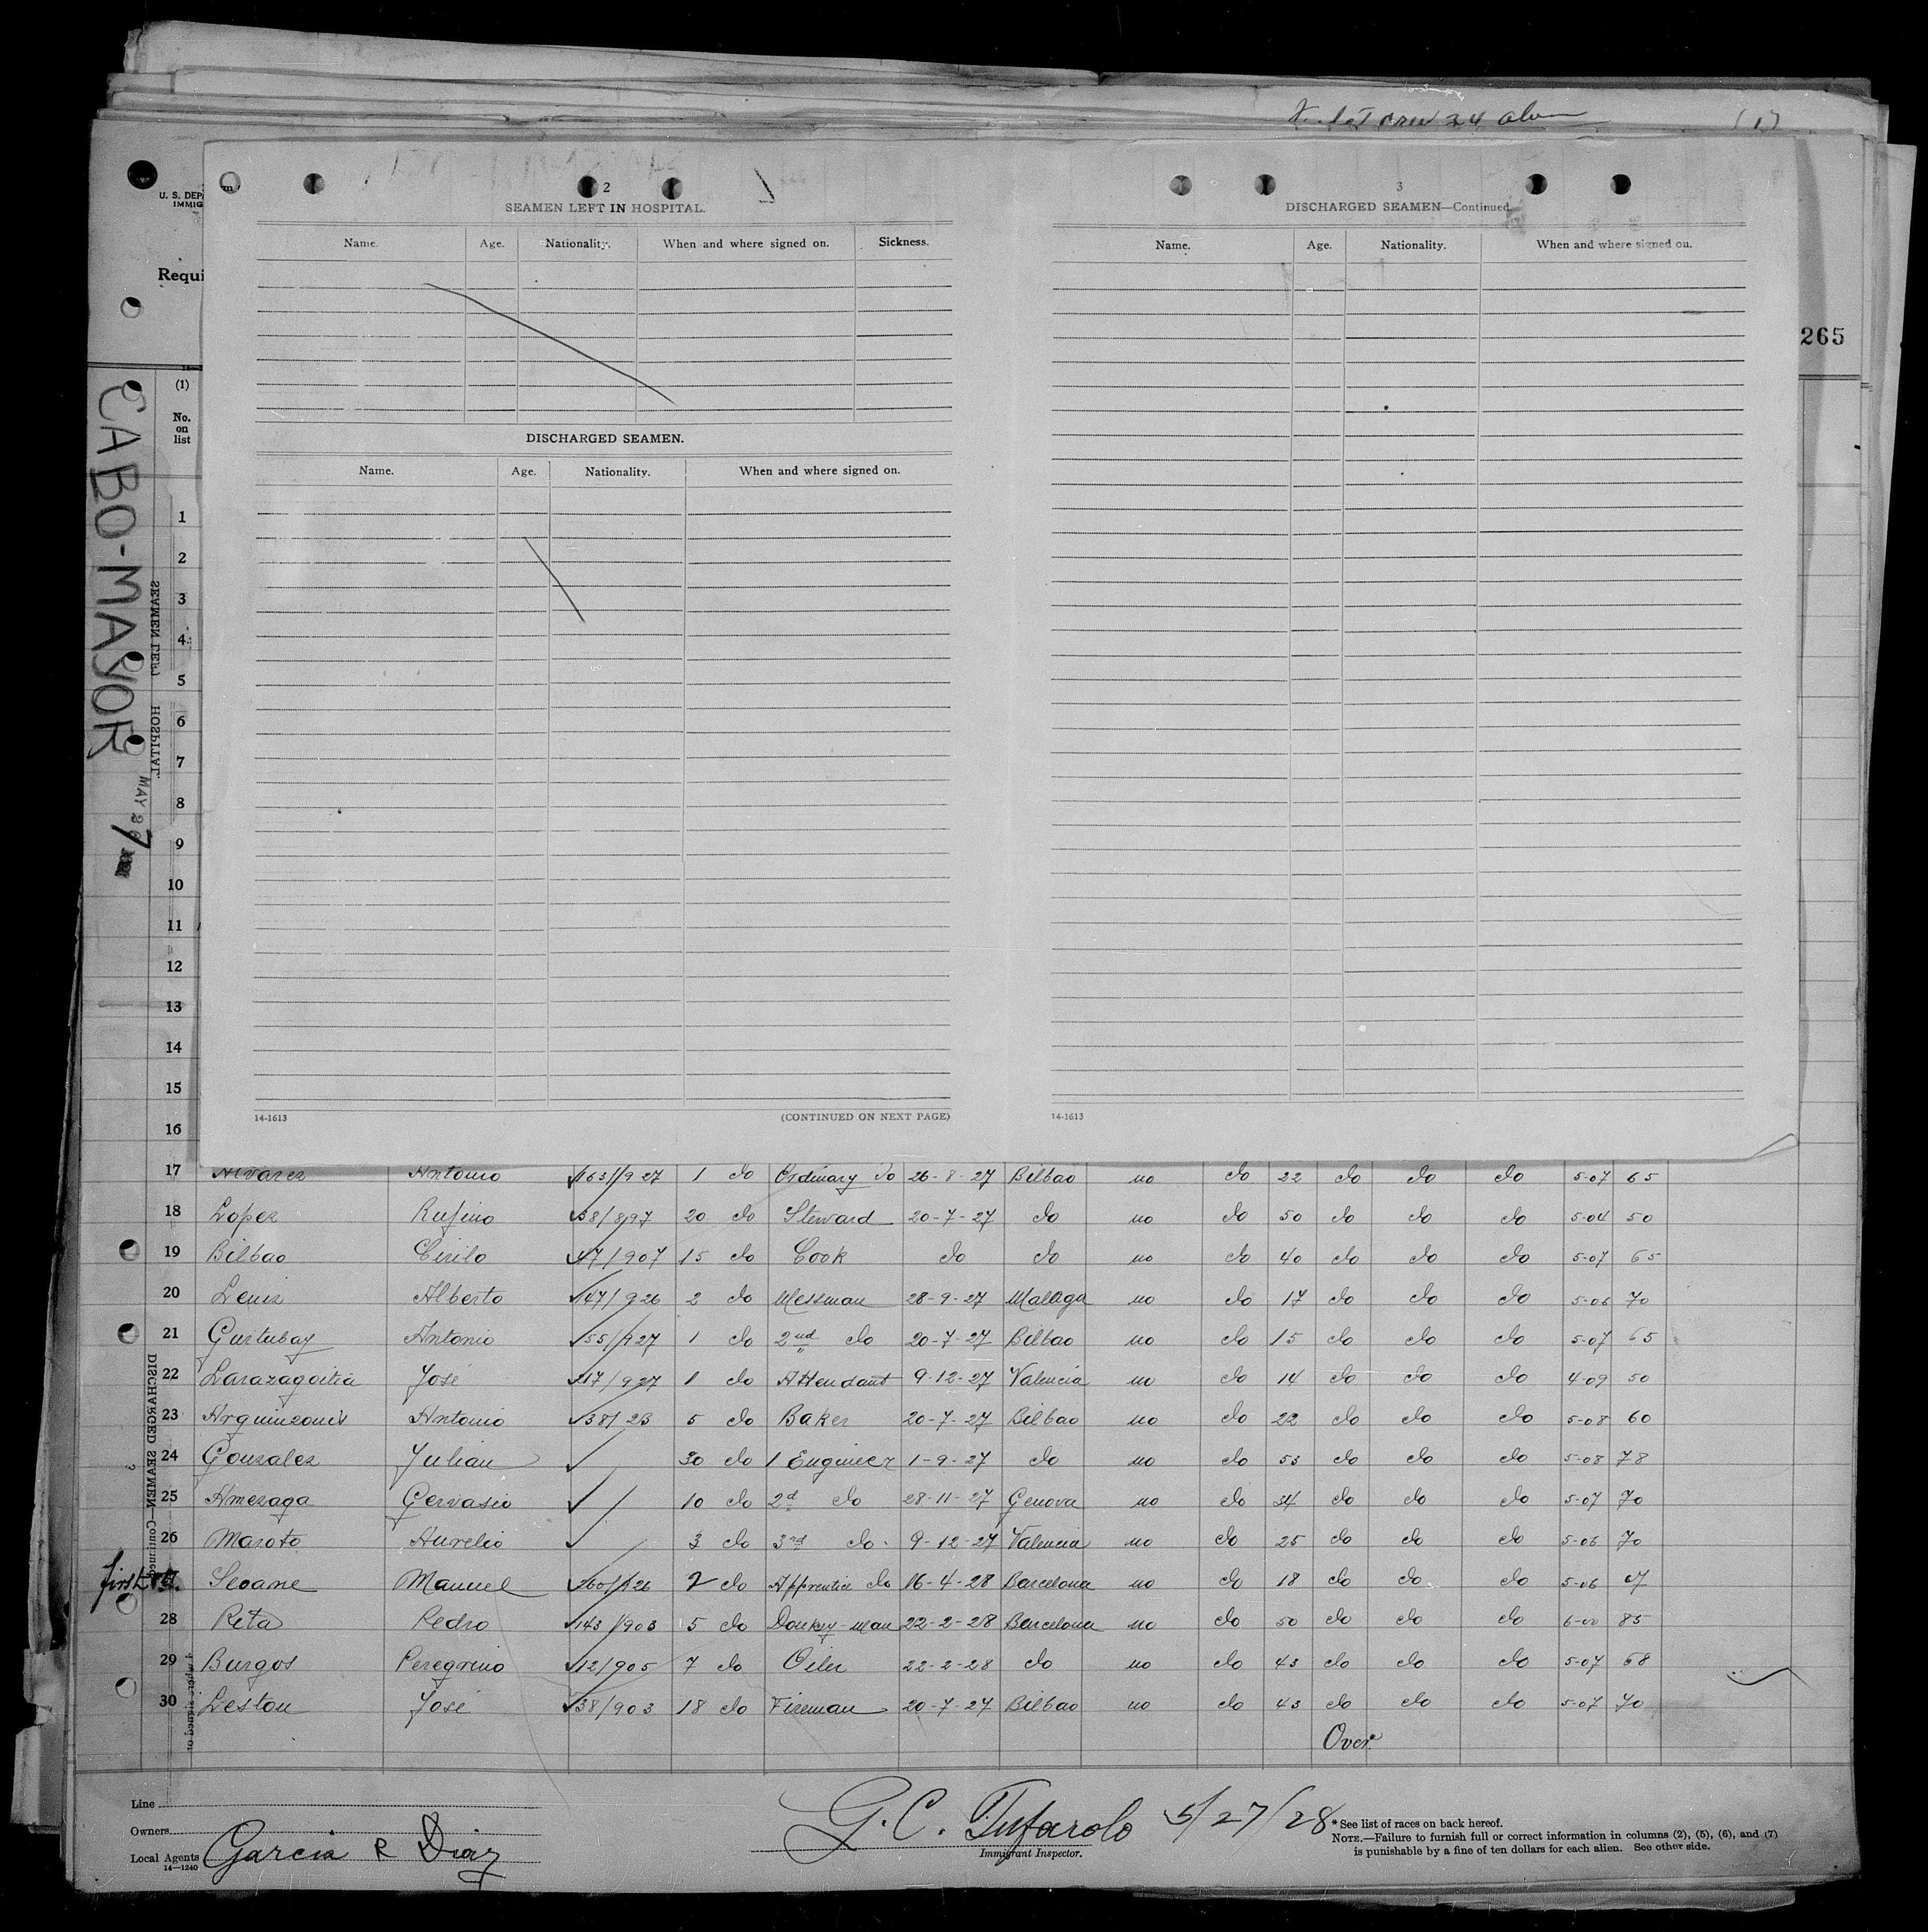 1st crew 34
U. S. DEP
IMMIG
Requi
265
(1)
No.
on
list
CABO-MAYOR
MAY 2
7
SEAMEN LEFT
HOSPITAL
2
SEAMEN LEFT IN HOSPITAL.
Name. Age. Nationality. When and where signed on. Sickness.
DISCHARGED SEAMEN.
Name. Age. Nationality. When and where signed on.
14-1613 (CONTINUED ON NEXT PAGE)
3
DISCHARGED SEAMEN—Continued.
Name. Age. Nationality. When and where signed on.
14-1613
1
2
3
4
5
6
7
8
9
10
11
12
13
14
15
16
17 Alvarez Antonio 163/927 1 do Ordinary do 26-8-27 Bilbao no do 22 do do do 5-07 65
18 Lopez Rufino 38/897 20 do Steward 20-7-27 do no do 50 do do do 5-04 50
19 Bilbao Cirilo 47/907 15 do Cook do do no do 40 do do do 5-07 65
20 Leniz Alberto 147/926 2 do Messman 28-9-27 Malaga no do 17 do do do 5-06 70
21 Gurtubay Antonio 55/927 1 do 2nd do 20-7-27 Bilbao no do 15 do do do 5-07 65
22 Larazagoitia José 417/927 1 do Attendant 9-12-27 Valencia no do 14 do do do 4-09 50
23 Arguinzonis Antonio 38/23 5 do Baker 20-7-27 Bilbao no do 22 do do do 5-08 60
24 Gonzalez Julian 30 do 1 Engineer 1-9-27 do no do 53 do do do 5-08 78
25 Amezaga Gervasio 10 do 2d do 28-11-27 Genova no do 34 do do do 5-07 70
26 Maroto Aurelio 3 do 3rd do. 9-12-27 Valencia no do 25 do do do 5-06 70
first Seoane Manuel 260/926 2 do Apprentice do 16-4-28 Barcelona no do 18 do do do 5-06 67
28 Rita Pedro 143/903 5 do Donkey-man 22-2-28 Barcelona no do 50 do do do 6-00 85
29 Burgos Peregrino 12/905 7 do Oiler 22-2-28 do no do 43 do do do 5-07 68
30 Leston José 38/903 18 do Fireman 20-7-27 Bilbao no do 43 do do do 5-07 70
DISCHARGED SEAMEN—Continued
Over
Line
Owners
Local Agents Garcia & Diaz
14—1240
G. C. Tufarolo 5/27/28
Immigrant Inspector.
* See list of races on back hereof.
NOTE.—Failure to furnish full or correct information in columns (2), (5), (6), and (7)
is punishable by a fine of ten dollars for each alien. See other side.